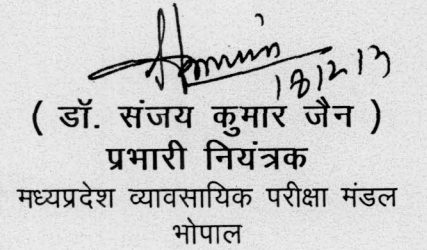 18/2/13
( डॉ. संजय कुमार जैन )
प्रभारी नियंत्रक
मध्यप्रदेश व्यावसायिक परीक्षा मंडल
भोपाल